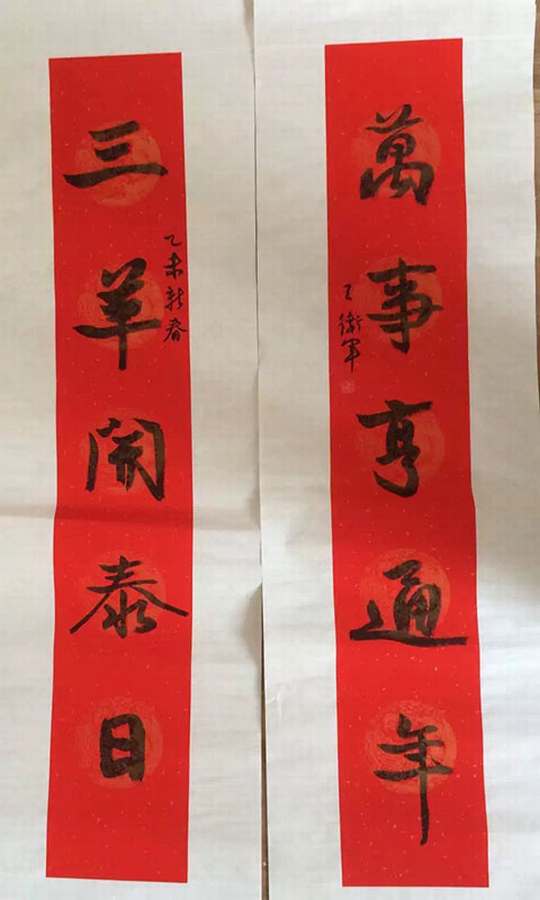 三羊開泰日
乙未新春
萬事亨通年
王衛軍